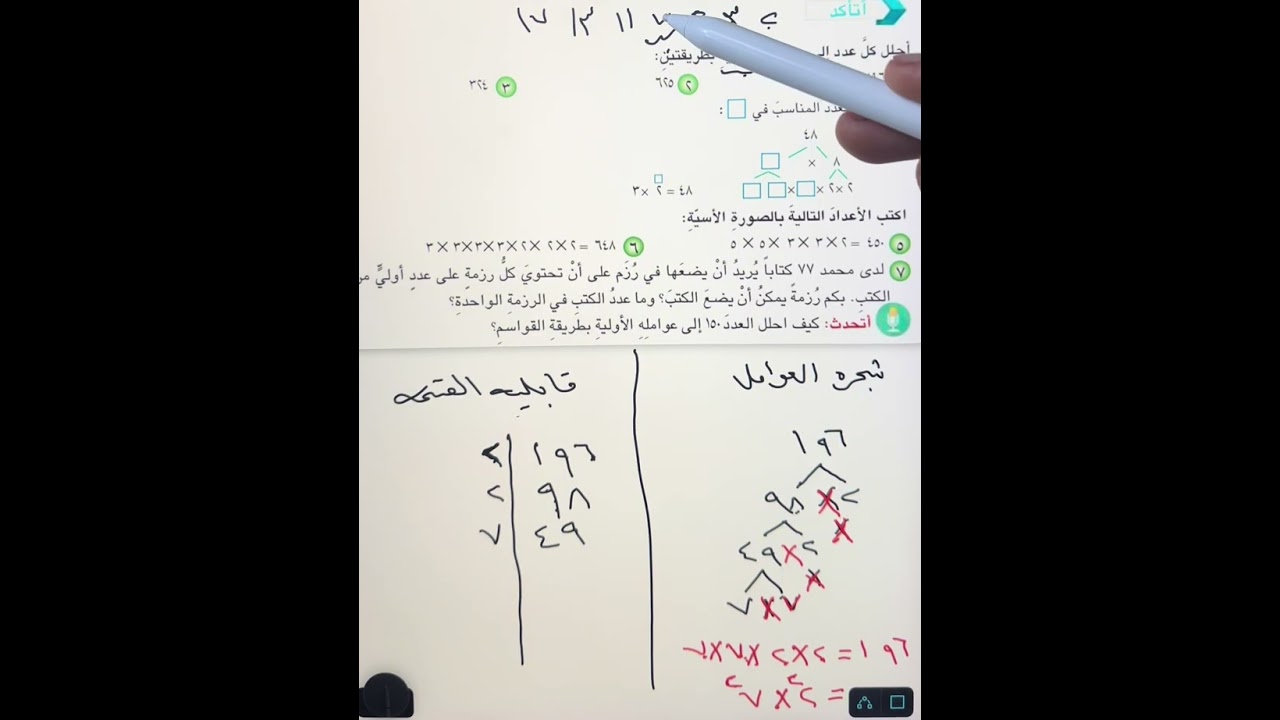 أتأكد
٢ ٣ ١١ ١٣ ١٧
أحلل كلَّ عدد بطريقتينِ:
٢ ٦٢٥
٣ ٣٢٤
المناسبَ في □ :
٤٨
٨ × □
٢ × ٢ × □ × □ □
٤٨ = ٢□ × ٣
اكتب الأعدادَ التاليةَ بالصورةِ الأسيّةِ:
٥ ٤٥٠ = ٢ × ٣ × ٣ × ٥ × ٥
٦ ٦٤٨ = ٢ × ٢ × ٢ × ٣ × ٣ × ٣ × ٣
٧ لدى محمد ٧٧ كتاباً يُريدُ أنْ يضعَها في رُزَم على أنْ تحتويَ كلُّ رزمةٍ على عددٍ أوليٍّ من
الكتبِ. بكم رُزمةً يمكنُ أنْ يضعَ الكتبَ؟ وما عددُ الكتبِ في الرزمةِ الواحدةِ؟
أتحدث: كيف احلل العددَ ١٥٠ إلى عواملِهِ الأوليةِ بطريقةِ القواسمِ؟
شجره العوامل
١٩٦
٢ × ٩٨
× ٢ × ٤٩
× ٧ × ٧
١٩٦ = ٢ × ٢ × ٧ × ٧
= ٢² × ٧²
قابليه القسمه
١٩٦ | ٢
٩٨ | ٢
٤٩ | ٧